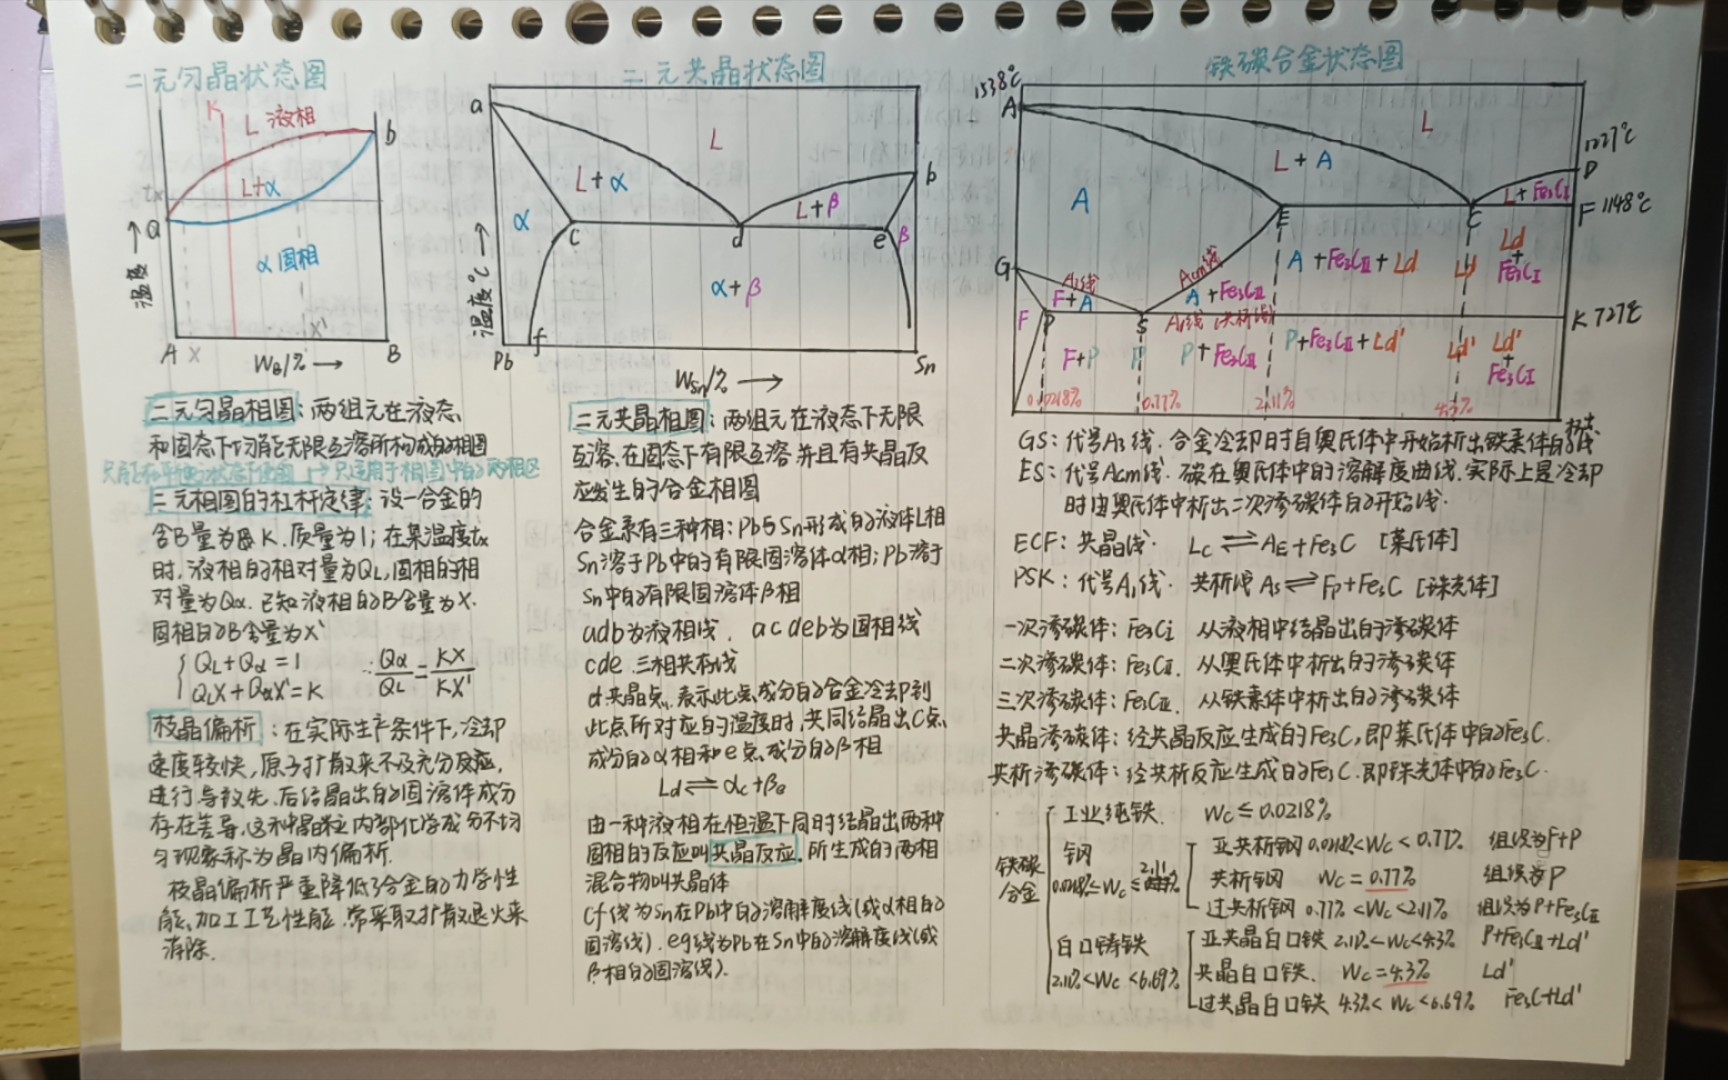 二元匀晶状态图
K
L 液相
b
L+α
tx
a
α固相
温度
A
X
X'
B
WB/% →
二元匀晶相图：两组元在液态
和固态下均能无限互溶所构成的相图
只适用于相图中的两相区
二元相图的杠杆定律：设一合金的
含B量为K.质量为1；在某温度tx
时，液相的相对量为QL，固相的相
对量为Qα.已知液相的B含量为X.
固相的B含量为X'
QL+Qα=1
QLX+QαX'=K
∴Qα/QL=KX/KX'
枝晶偏析：在实际生产条件下，冷却
速度较快，原子扩散来不及充分反应，
进行.导致先.后结晶出的固溶体成分
存在差异，这种晶粒内部化学成分不均
匀现象称为晶内偏析.
枝晶偏析严重降低了合金的力学性
能，加工工艺性能，常采取扩散退火来
消除.
二元共晶状态图
a
L
b
L+α
L+β
α
c
d
e
β
α+β
温度℃
f
Pb
Sn
WSn/% →
二元共晶相图：两组元在液态下无限
互溶、在固态下有限互溶并且有共晶反
应发生的合金相图
合金系有三种相：Pb与Sn形成的液体L相
Sn溶于Pb中的有限固溶体α相；Pb溶于
Sn中的有限固溶体β相
adb为液相线，acdeb为固相线
cde.三相共存线
d共晶点.表示此点成分的合金冷却到
此点所对应的温度时，共同结晶出C点
成分的α相和e点成分的β相
Ld⇌αc+βe
由一种液相在恒温下同时结晶出两种
固相的反应叫共晶反应.所生成的两相
混合物叫共晶体
Cf线为Sn在Pb中的溶解度线（或α相的
固溶线）.eg线为Pb在Sn中的溶解度线（或
β相的固溶线）.
铁碳合金状态图
1538℃
A
L
1227℃
D
L+A
L+Fe3CⅠ
A
E
C
F 1148℃
G
A3线
Acm线
A+Fe3CⅡ+Ld
Ld
Ld
+
Fe3CⅠ
F+A
A+Fe3CⅡ
F
P
S
A1线（共析线）
K 727℃
F+P
P
P+Fe3CⅡ
P+Fe3CⅡ+Ld'
Ld'
Ld'
+
Fe3CⅠ
0.0218%
0.77%
2.11%
4.3%
GS：代号A3线.合金冷却时自奥氏体中开始析出铁素体的线
ES：代号Acm线.碳在奥氏体中的溶解度曲线.实际上是冷却
时由奥氏体中析出二次渗碳体的开始线.
ECF：共晶线. LC⇌AE+Fe3C [莱氏体]
PSK：代号A1线.共析线 AS⇌FP+Fe3C [珠光体]
一次渗碳体：Fe3CⅠ 从液相中结晶出的渗碳体
二次渗碳体：Fe3CⅡ. 从奥氏体中析出的渗碳体
三次渗碳体：Fe3CⅢ. 从铁素体中析出的渗碳体
共晶渗碳体：经共晶反应生成的Fe3C，即莱氏体中的Fe3C.
共析渗碳体：经共析反应生成的Fe3C.即珠光体中的Fe3C.
铁碳合金
工业纯铁. Wc≤0.0218%
钢
0.0218%≤Wc≤2.11%
亚共析钢 0.0218%<Wc<0.77% 组织为F+P
共析钢 Wc=0.77% 组织为P
过共析钢 0.77%<Wc<2.11% 组织为P+Fe3CⅡ
白口铸铁
2.11%<Wc<6.69%
亚共晶白口铁 2.11%<Wc<4.3% P+Fe3CⅡ+Ld'
共晶白口铁. Wc=4.3% Ld'
过共晶白口铁 4.3%<Wc<6.69% Fe3C+Ld'